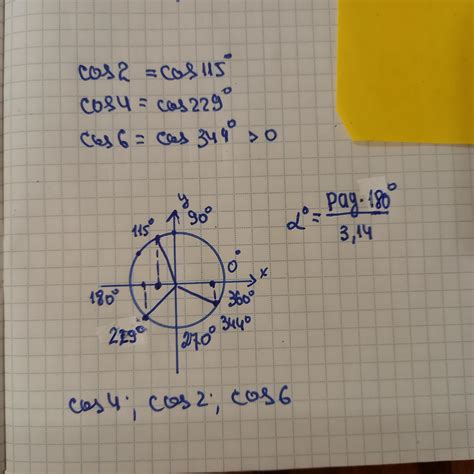 cos2 = cos115°
cos4 = cos229°
cos6 = cos344° >0
α° = рад·180° / 3,14
y
115° 90°
0° x
180° 360°
344°
229° 270°
cos4; cos2; cos6